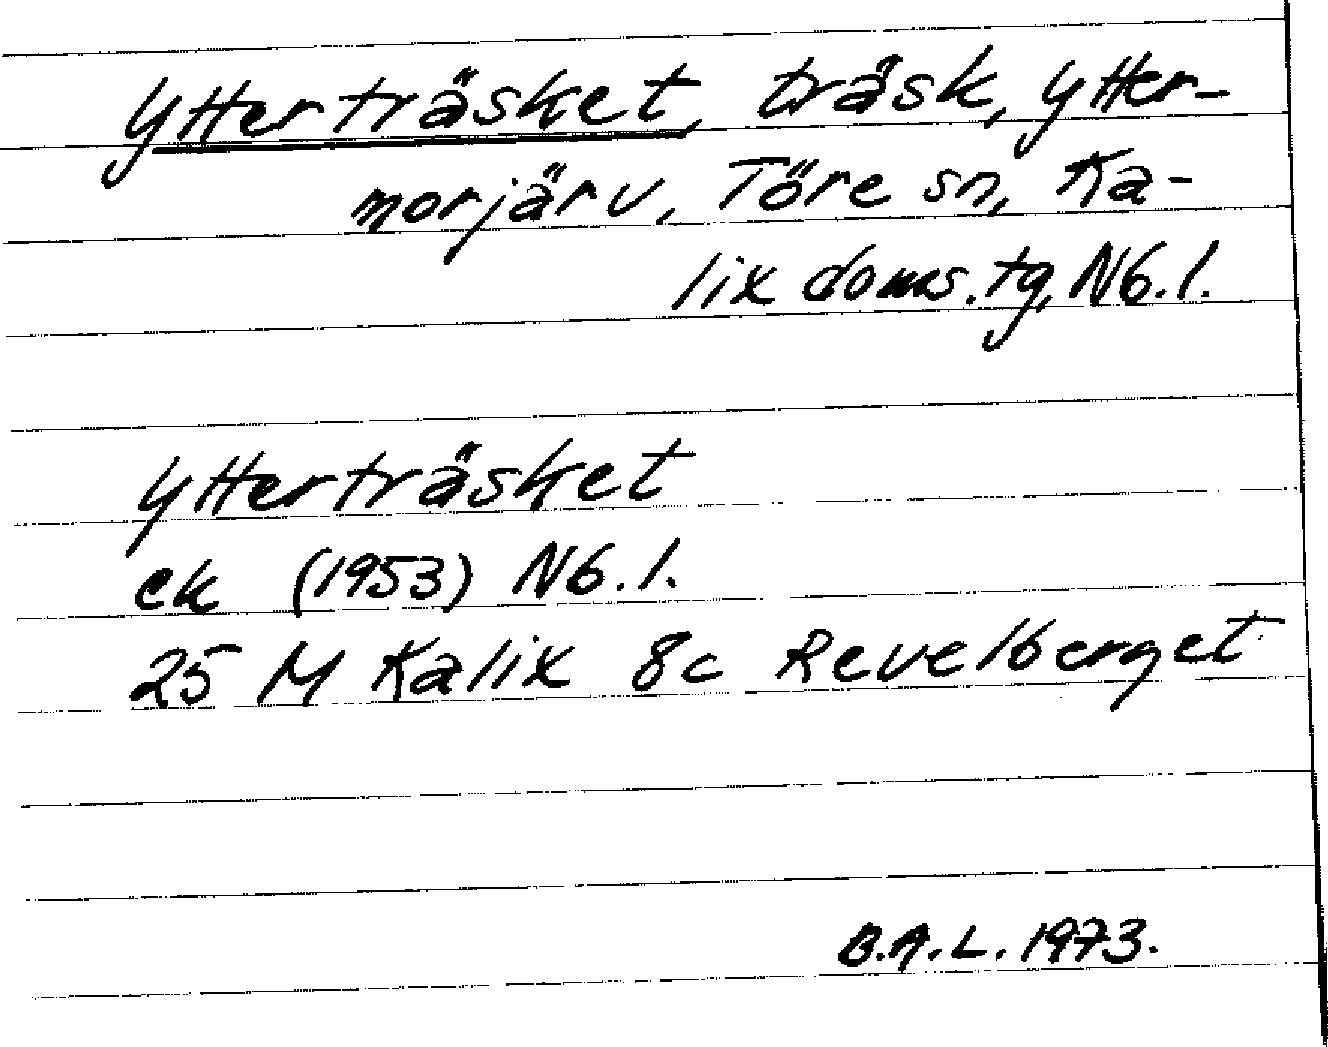 Ytterträsket, träsk, Ytter-
morjärv, Töre sn, Ka-
lix doms. tg, Nb. l.
Ytterträsket
ek (1953) Nb. l.
25 M Kalix 8c Revelberget
B.A.L. 1973.